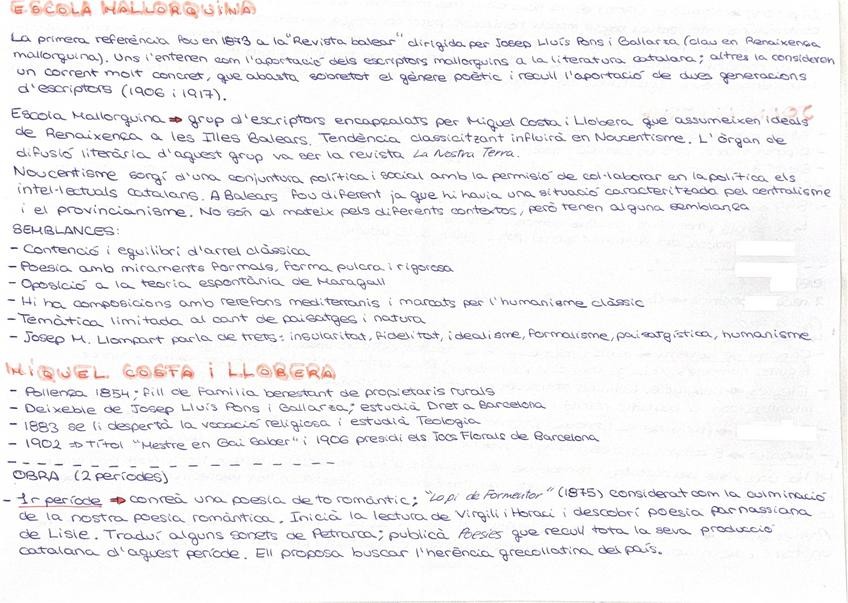 ESCOLA MALLORQUINA
La primera referència fou en 1873 a la "Revista balear" dirigida per Josep Lluís Pons i Gallarza (clau en Renaixença
mallorquina). Uns l'enteren com l'aportació dels escriptors mallorquins a la literatura catalana; altres la consideren
un corrent molt concret, que abasta sobretot el gènere poètic i recull l'aportació de dues generacions
d'escriptors (1906 i 1917).
Escola Mallorquina → grup d'escriptors encapçalats per Miquel Costa i Llobera que assumeixen ideals
de Renaixença a les Illes Balears. Tendència classicitzant influirà en Noucentisme. L'òrgan de
difusió literària d'aquest grup va ser la revista La Nostra Terra.
Noucentisme sorgí d'una conjuntura política i social amb la permisió de col·laborar en la política els
intel·lectuals catalans. A Balears fou diferent ja que hi havia una situació caracteritzada pel centralisme
i el provincianisme. No són el mateix pels diferents contextos, però tenen alguna semblança
SEMBLANCES:
- Contenció i equilibri d'arrel clàssica
- Poesia amb miraments formals, forma pulcra i rigorosa
- Oposició a la teoria espontània de Maragall
- Hi ha composicions amb rerefons mediterranis i marcats per l'humanisme clàssic
- Temàtica limitada al cant de paisatges i natura
- Josep M. Llompart parla de trets: insularitat, fidelitat, idealisme, formalisme, paisatgística, humanisme
MIQUEL COSTA i LLOBERA
- Pollença 1854; fill de família benestant de propietaris rurals
- Deixeble de Josep Lluís Pons i Gallarza; estudià Dret a Barcelona
- 1883 se li despertà la vocació religiosa i estudià Teologia
- 1902 ⇒ Títol "Mestre en Gai Saber" i 1906 presidí els Jocs Florals de Barcelona
OBRA (2 períodes)
- 1r període → conreà una poesia de to romàntic; "Lo pi de Formentor" (1875) considerat com la culminació
de la nostra poesia romàntica. Inicià la lectura de Virgili i Horaci i descobrí poesia parnassiana
de Lisle. Traduí alguns sonets de Petrarca; publicà Poesies que recull tota la seva producció
catalana d'aquest període. Ell proposa buscar l'herència grecollatina del país.